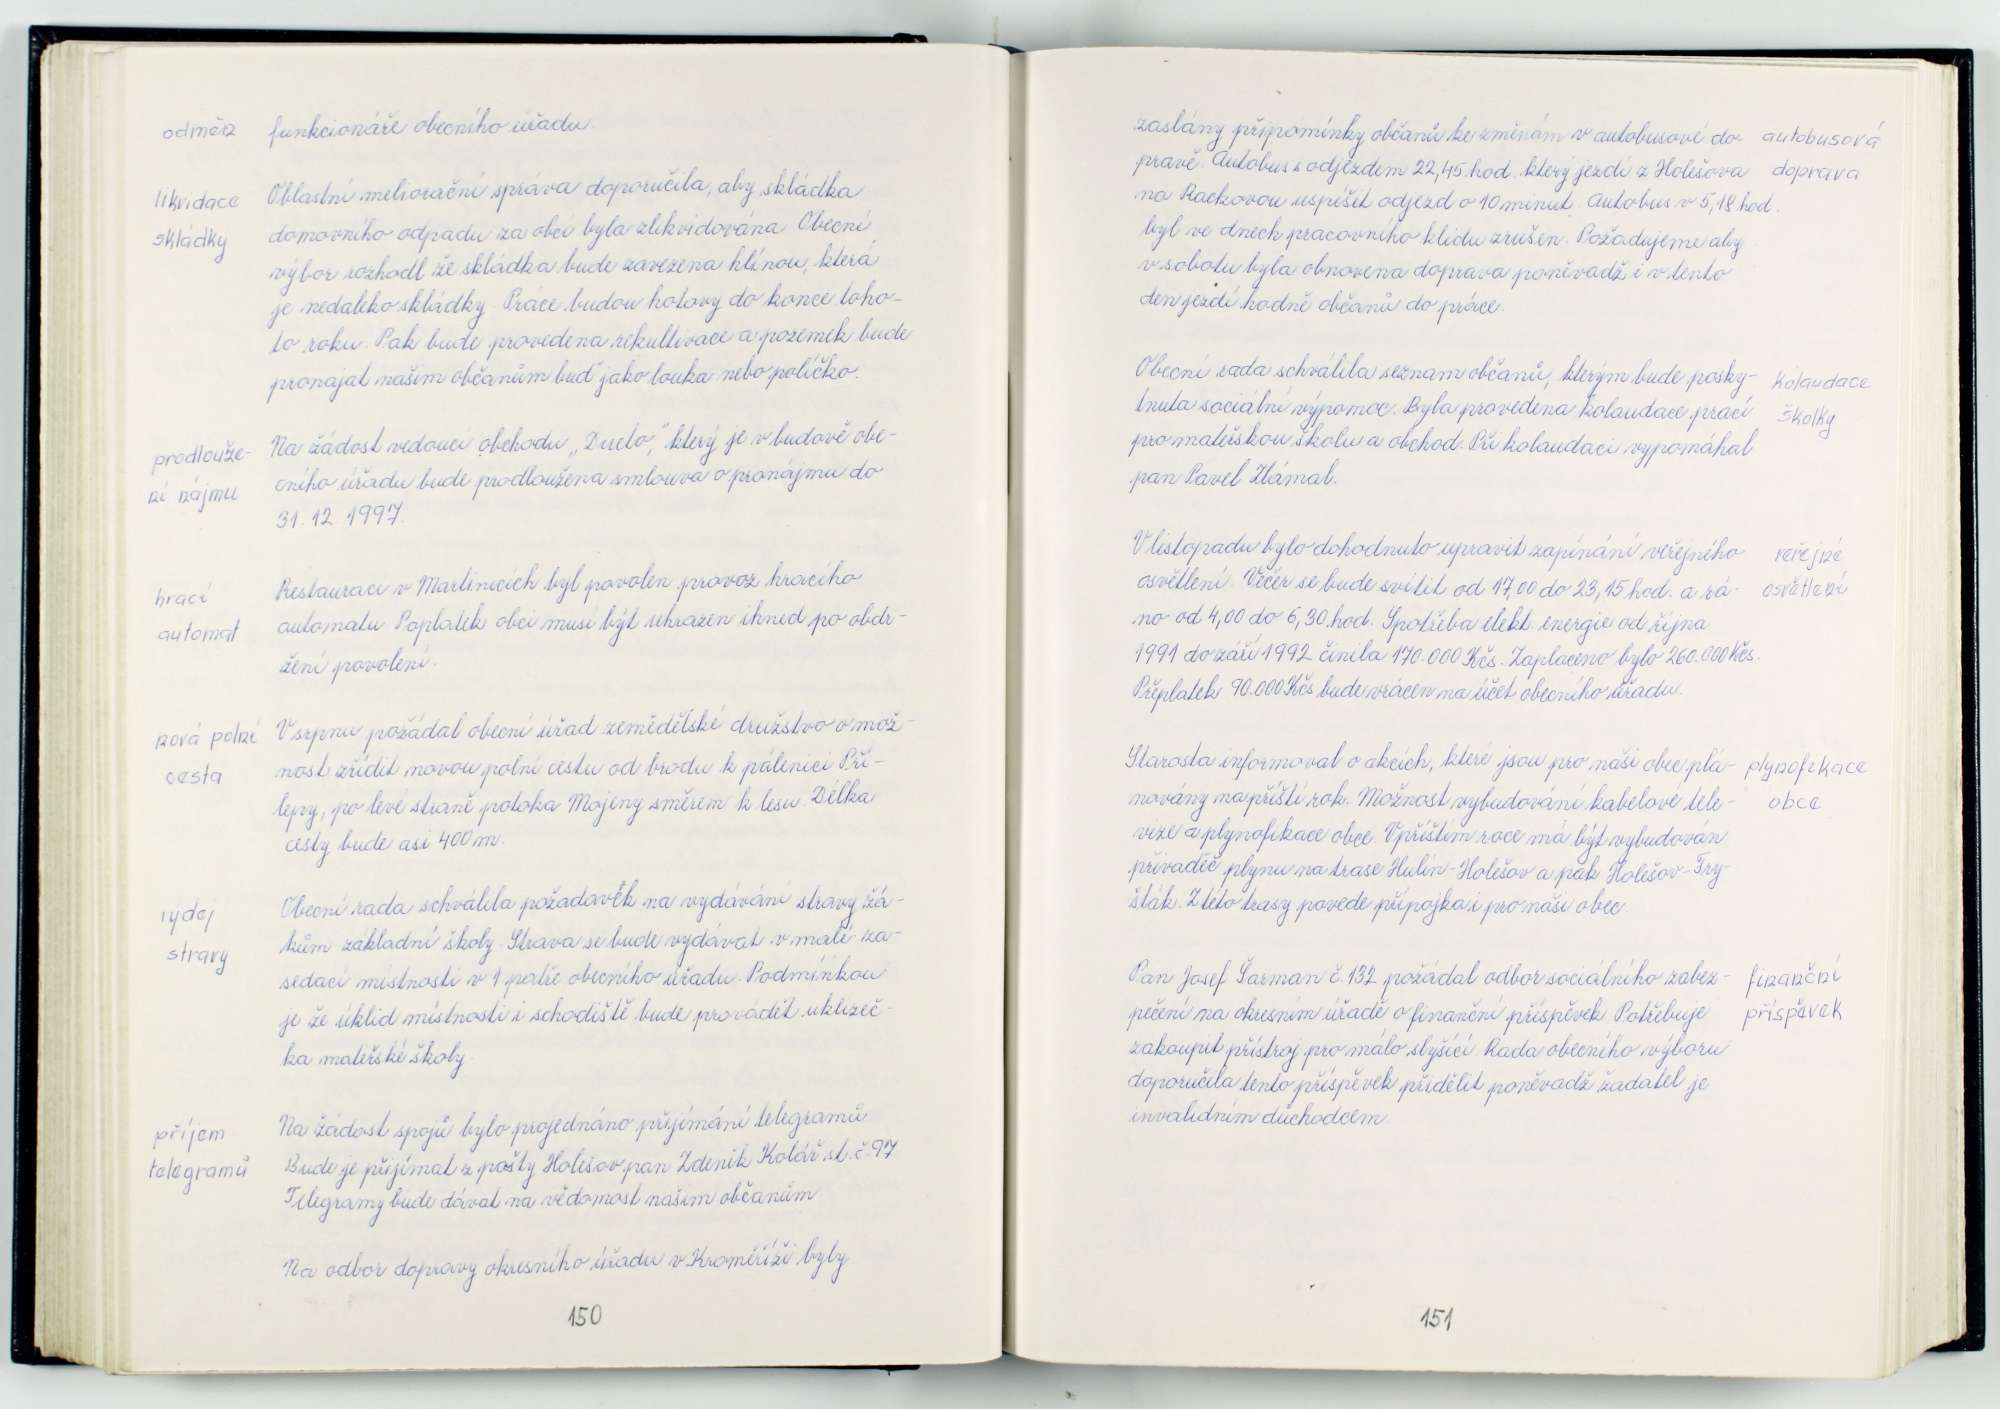 odměn
funkcionáře obecního úřadu.
likvidace
skládky
Oblastní meliorační správa doporučila, aby skládka
domovního odpadu za obcí byla zlikvidována. Obecní
výbor rozhodl že skládka bude zavezena hlínou, která
je nedaleko skládky. Práce budou hotovy do konce toho-
to roku. Pak bude provedena rekultivace a pozemek bude
pronajat našim občanům buď jako louka nebo políčko.
prodlouže-
ní nájmu
Na žádost vedoucí obchodu „Dueto", který je v budově obe-
cního úřadu bude prodloužena smlouva o pronájmu do
31. 12. 1997.
hrací
automat
Restauraci v Martinicích byl povolen provoz hracího
automatu Poplatek obci musí být uhrazen ihned po obdr-
žení povolení.
nová polní
cesta
V srpnu požádal obecní úřad zemědělské družstvo o mož-
nost zřídit novou polní cestu od brodu k pálenici Pří-
lepy, po levé straně potoka Mojeny směrem k lesu. Délka
cesty bude asi 400 m.
výdej
stravy
Obecní rada schválila požadavek na vydávání stravy žá-
kům základní školy. Strava se bude vydávat v malé za-
sedací místnosti v 1 patře obecního úřadu. Podmínkou
je že úklid místnosti i schodiště bude provádět uklizeč-
ka mateřské školy.
příjem
telegramů
Na žádost spojů bylo projednáno přijímání telegramů
Bude je přijímat z pošty Holešov pan Zdeněk Kolář st. č. 97
Telegramy bude dávat na vědomost našim občanům
Na odbor dopravy okresního úřadu v Kroměříži byly
150
zaslány připomínky občanů ke změnám v autobusové do-
pravě. Autobus s odjezdem 22,45 hod. který jezdí z Holešova
na Rackovou uspíšit odjezd o 10 minut. Autobus v 5,18 hod.
byl ve dnech pracovního klidu zrušen. Požadujeme aby
v sobotu byla obnovena doprava poněvadž i v tento
den jezdí hodně občanů do práce.
autobusová
doprava
Obecní rada schválila seznam občanů, kterým bude posky-
tnuta sociální výpomoc. Byla provedena kolaudace prací
pro mateřskou školu a obchod. Při kolaudaci vypomáhal
pan Pavel Zlámal.
kolaudace
školky
V listopadu bylo dohodnuto upravit zapínání veřejného
osvětlení. Večer se bude svítit od 17,00 do 23,15 hod. a rá-
no od 4,00 do 6,30 hod. Spotřeba elekt. energie od října
1991 do září 1992 činila 170.000 Kčs. Zaplaceno bylo 260.000 Kčs.
Přeplatek 90.000 Kčs bude vrácen na účet obecního úřadu.
veřejné
osvětlení
Starosta informoval o akcích, které jsou pro naši obec plá-
novány na příští rok. Možnost vybudování kabelové tele-
vize a plynofikace obce. V příštím roce má být vybudován
přivaděč plynu na trase Hulín - Holešov a pak Holešov - Fry-
šták. Z této trasy povede přípojka i pro naši obec.
plynofikace
obce
Pan Josef Šarman č. 132 požádal odbor sociálního zabez-
pečení na okresním úřadě o finanční příspěvek Potřebuje
zakoupit přístroj pro málo slyšící. Rada obecního výboru
doporučila tento příspěvek přidělit poněvadž žadatel je
invalidním důchodcem.
finanční
příspěvek
151